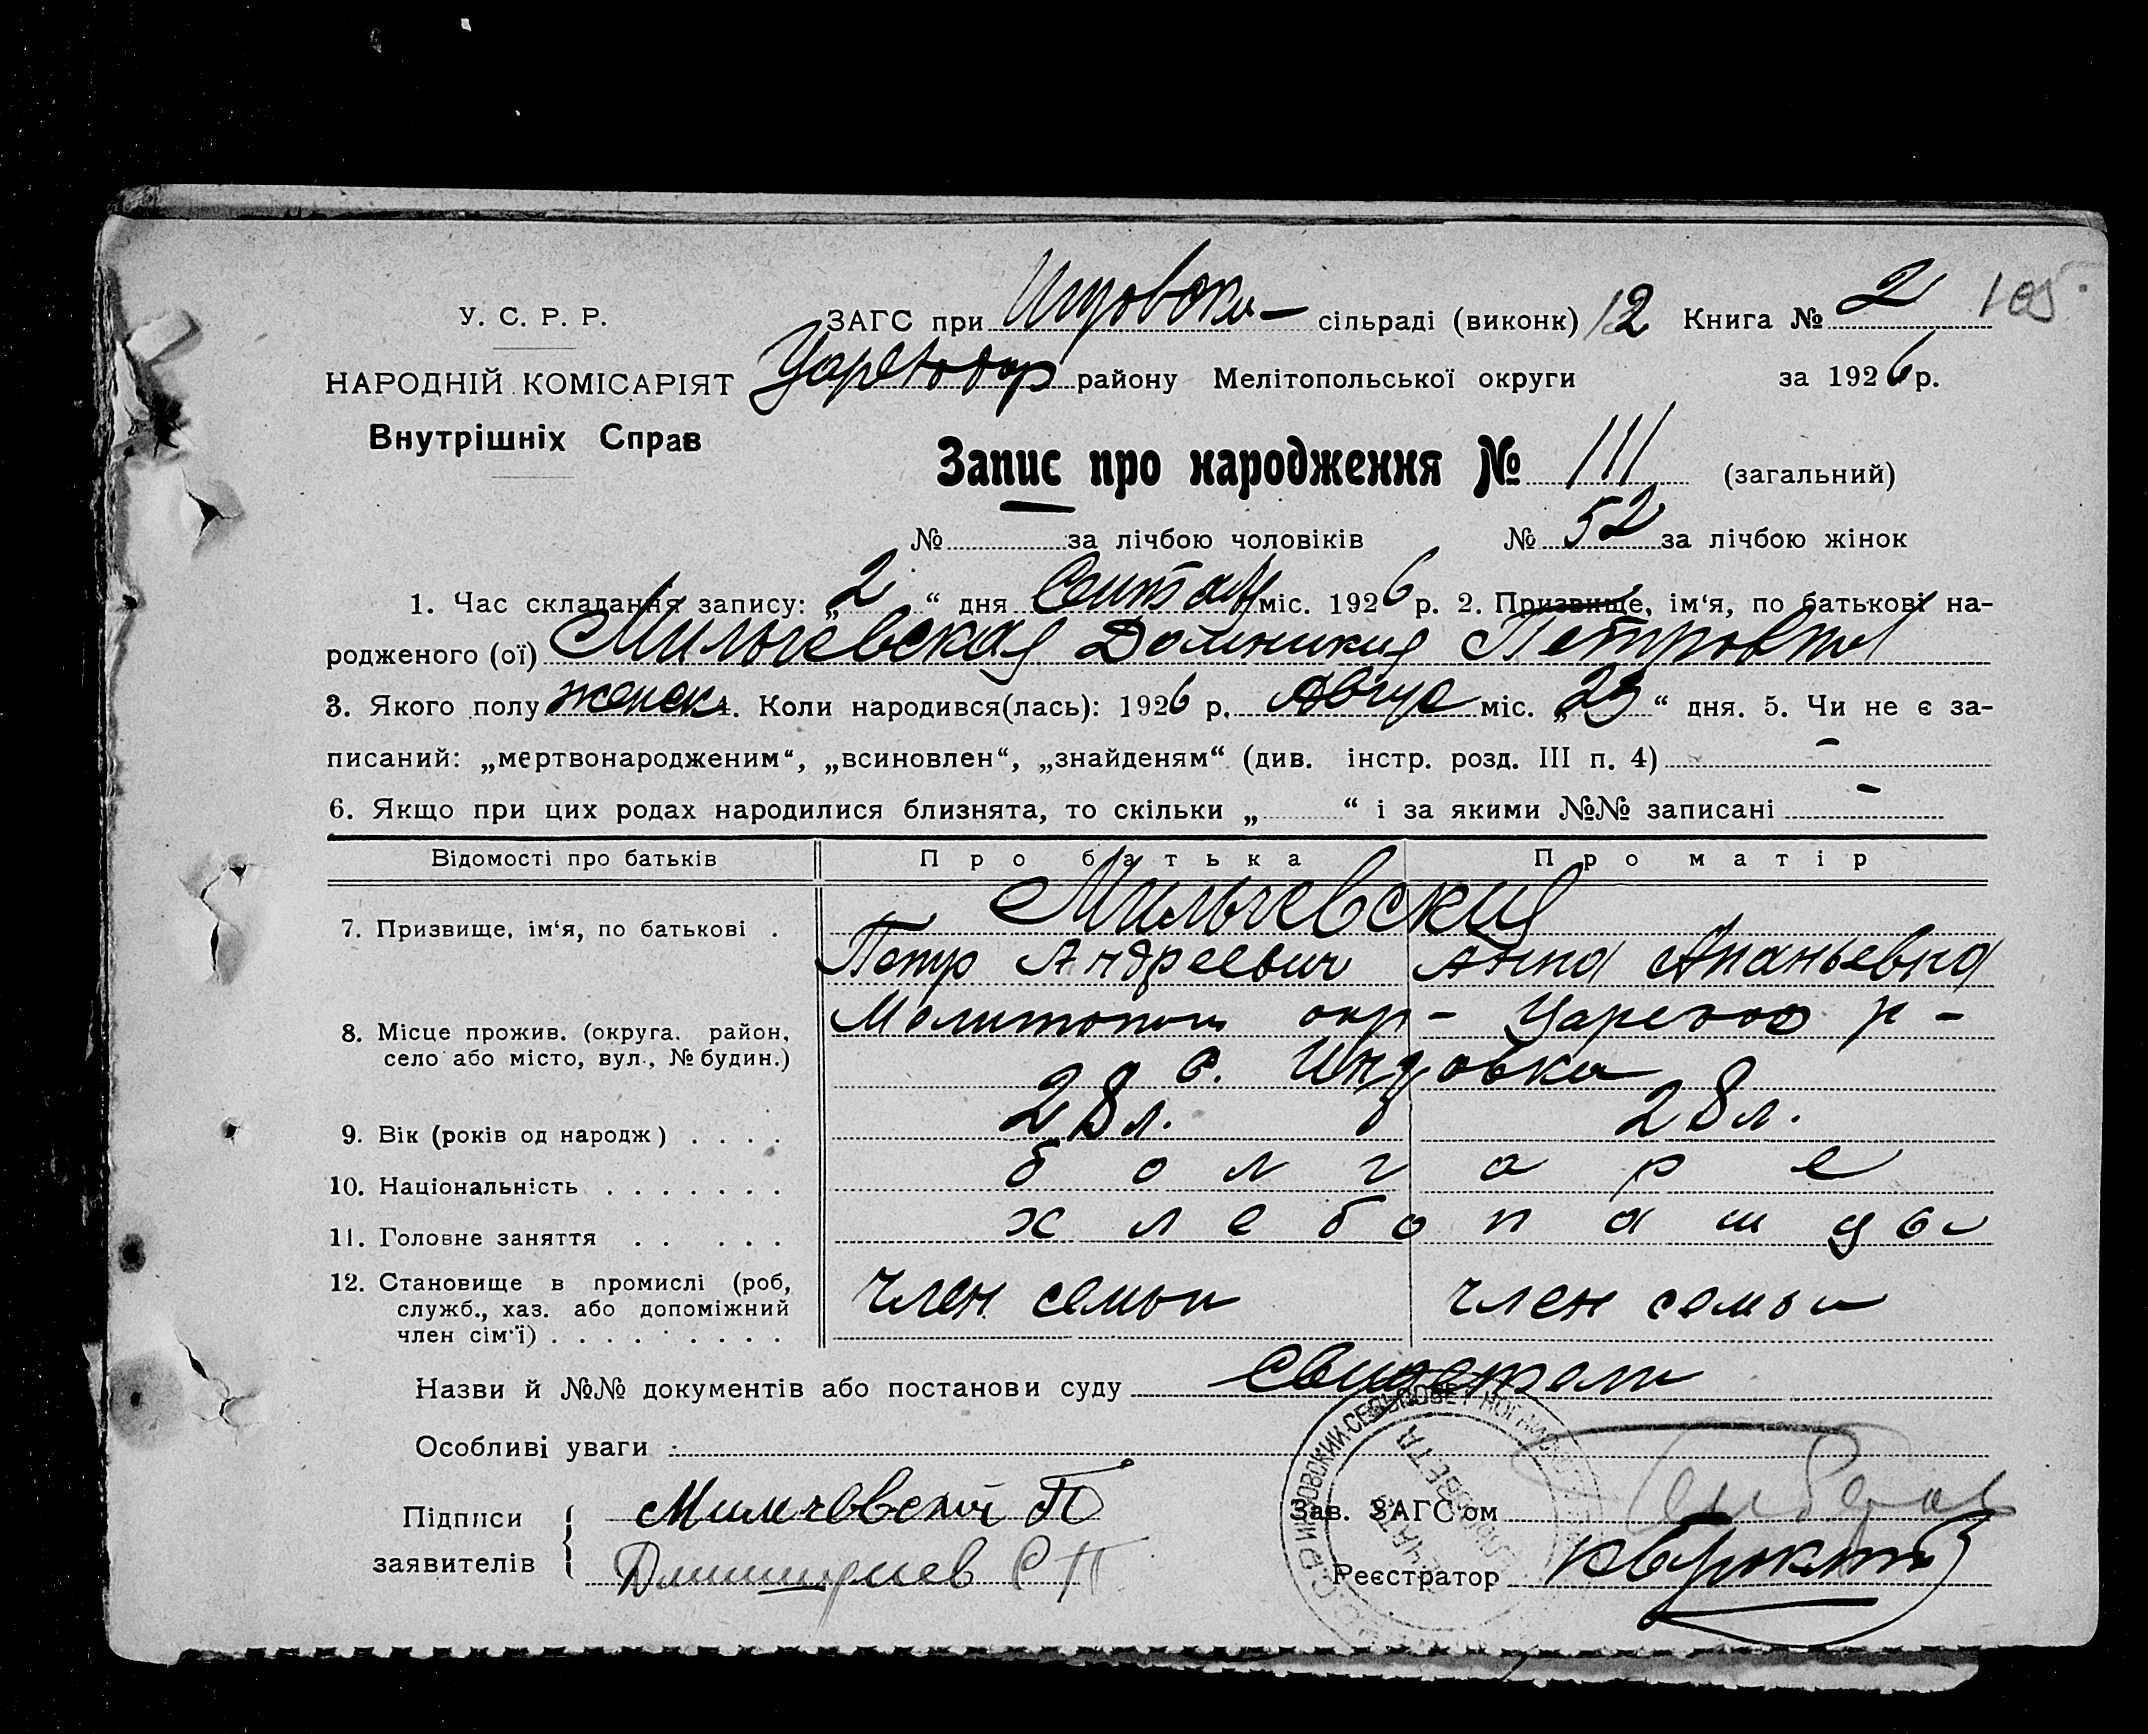 105
У. С. Р. Р. ЗАГС при сільраді (виконк) 12 Книга № 2
НАРОДНІЙ КОМІСАРІЯТ району Мелітопольської округи за 1926 р.
Внутрішніх Справ
Запис про народження № 111 (загальний)
№ за лічбою чоловіків № 52 за лічбою жінок
1. Час складання запису: „2“ дня міс. 1926 р. 2. Призвище, ім‘я, по батькові на-
родженого (ої) Мильчевская Доминикия Петровна
3. Якого полу женск 4. Коли народився(лась): 1926 р. Авгус міс. „23“ дня. 5. Чи не є за-
писаний: „мертвонародженим“, „всиновлен“, „знайденям“ (див. інстр. розд. III п. 4) –
6. Якщо при цих родах народилися близнята, то скільки „ “ і за якими №№ записані –
Відомості про батьків Про батька Про матір
7. Призвище, ім‘я, по батькові . Мильчевский
Петр Андреевич Анна Ананьевна
8. Місце прожив. (округа. район, село або місто, вул., № будин.) окр –
с. Индовка
9. Вік (років од народж) . . . . 28 л. 28 л.
10. Національність . . . . . . . болгаре
11. Головне заняття . . . . . хлебопашцы
12. Становище в промислі (роб, служб., хаз. або допоміжний член сім‘ї) . . . . . . . . . член семьи член семьи
Назви й №№ документів або постанови суду свидетели
Особливі уваги
Підписи заявителів Мильчевский П
Дмитриев С П
Зав. ЗАГС‘ом
Реєстратор